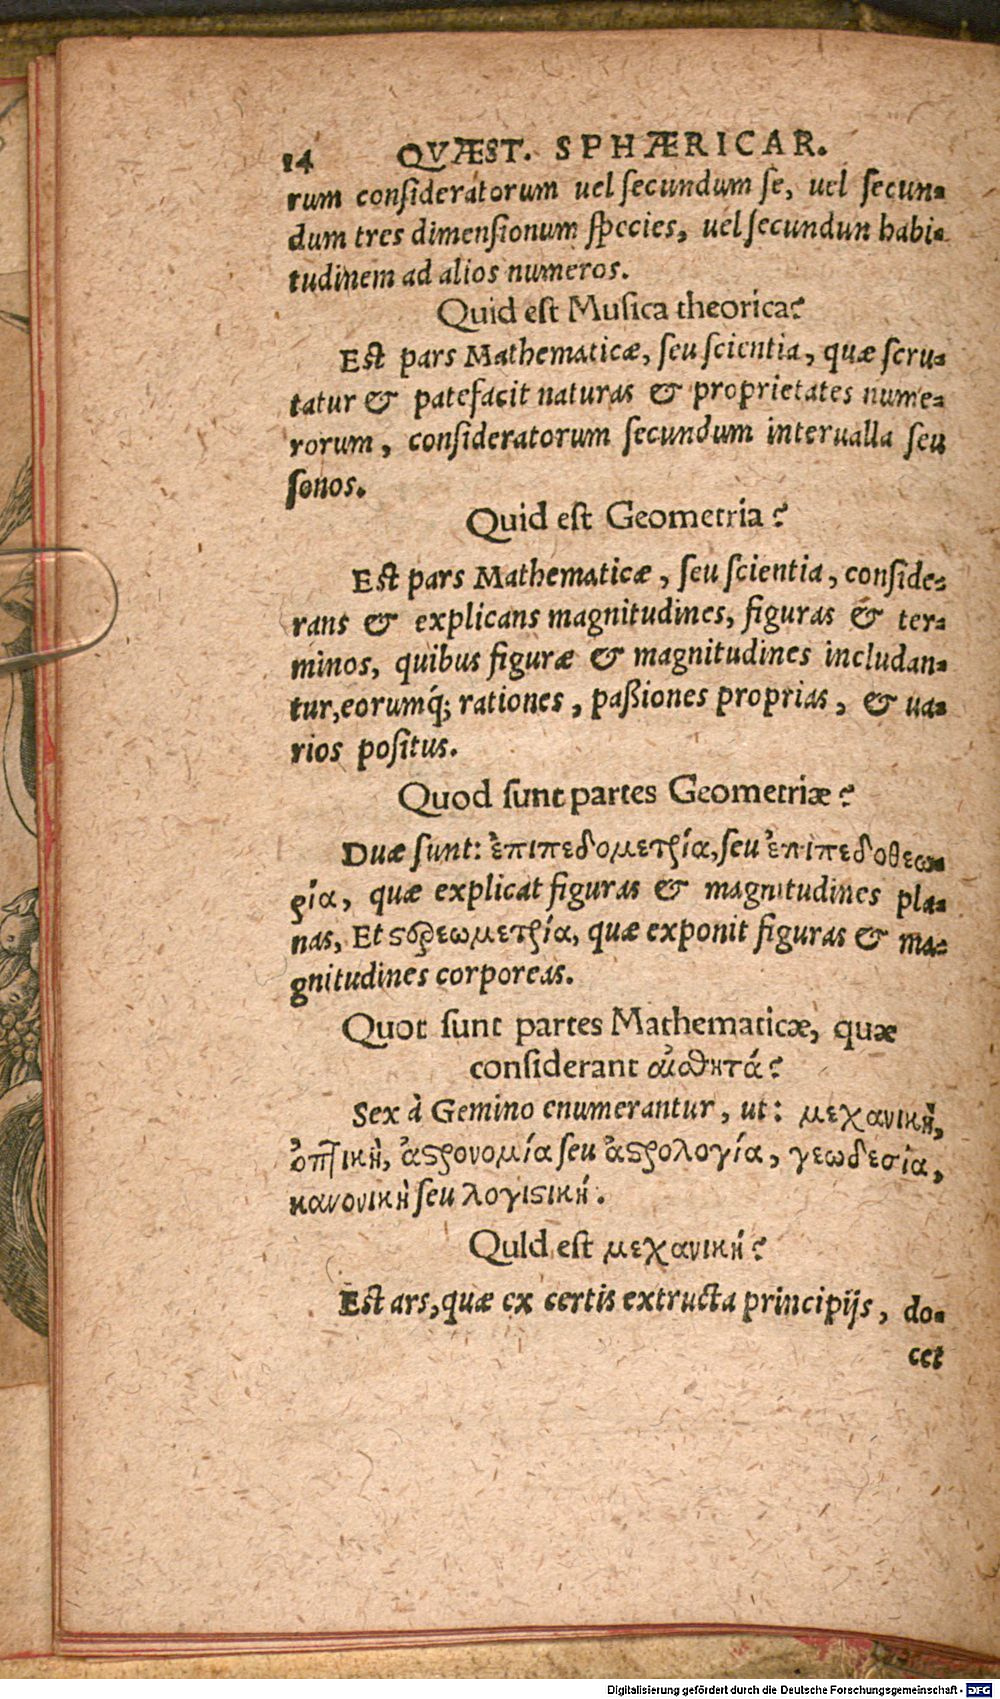 14 QVÆST. SPHÆRICAR.
rum consideratorum uel secundum se, uel secun-
dum tres dimensionum species, uel secundun habi-
tudinem ad alios numeros.
Quid est Musica theorica?
Est pars Mathematicæ, seu scientia, quæ scru-
tatur & patefacit naturas & proprietates nume-
rorum, consideratorum secundum interualla seu
sonos.
Quid est Geometria?
Est pars Mathematicæ, seu scientia, conside-
rans & explicans magnitudines, figuras & ter-
minos, quibus figuræ & magnitudines includan-
tur, eorumq́; rationes, paßiones proprias, & ua-
rios positus.
Quod sunt partes Geometriæ?
Duæ sunt: ἐπιπεδομετρία, seu ἐπιπεδοθεω-
ρία, quæ explicat figuras & magnitudines pla-
nas, Et ςορεωμετρία, quæ exponit figuras & ma-
gnitudines corporeas.
Quot sunt partes Mathematicæ, quæ
considerant αἰσθητά?
Sex à Gemino enumerantur, ut: μεχανικὴ,
ὀπτικὴ, ἀςρονομία seu ἀςρολογία, γεωδεσία,
κανονικὴ seu λογιςική.
Quld est μεχανική?
Est ars, quæ ex certis extructa principijs, do-
cet
Digitalisierung gefördert durch die Deutsche Forschungsgemeinschaft - DFG